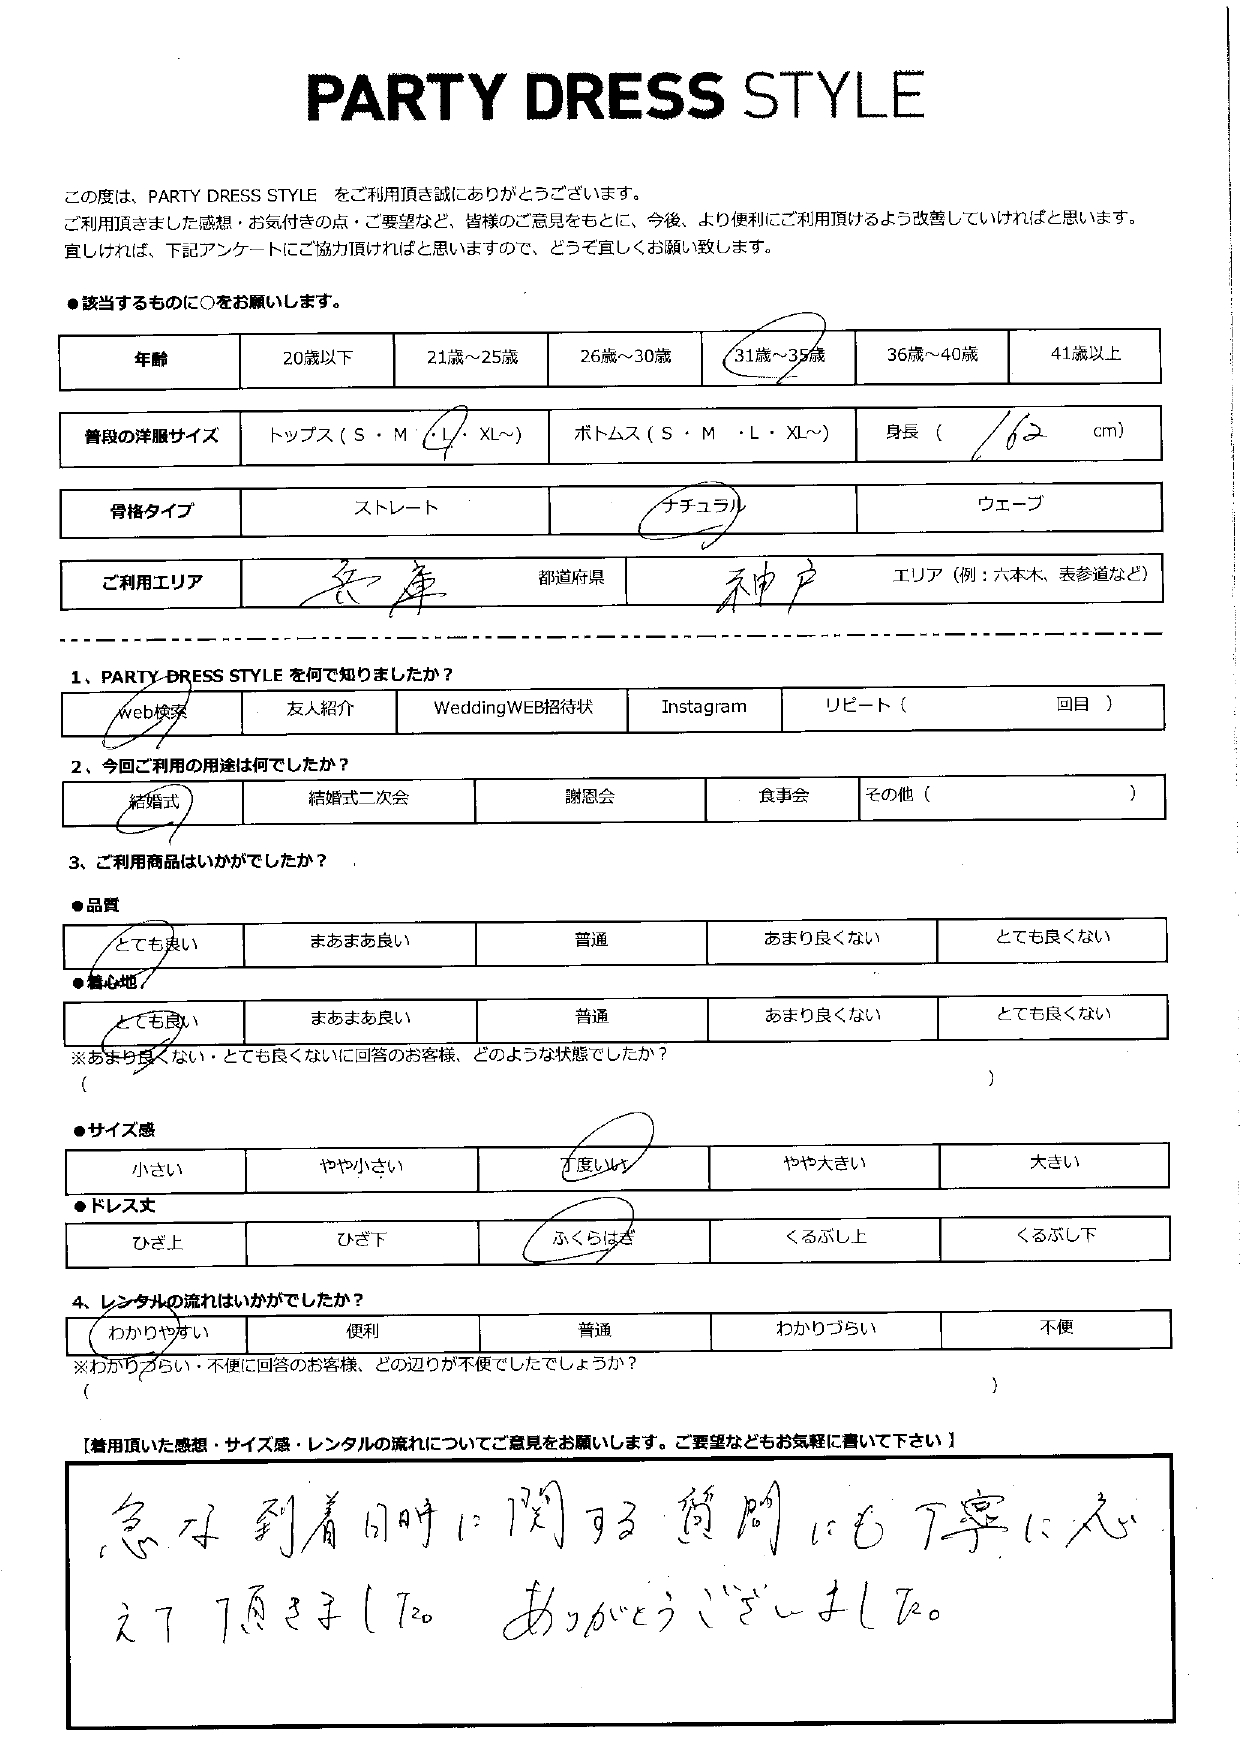 PARTY DRESS STYLE
この度は、PARTY DRESS STYLE をご利用頂き誠にありがとうございます。
ご利用頂きました感想・お気付きの点・ご要望など、皆様のご意見をもとに、今後、より便利にご利用頂けるよう改善していければと思います。
宜しければ、下記アンケートにご協力頂ければと思いますので、どうぞ宜しくお願い致します。
●該当するものに○をお願いします。
年齢 20歳以下 21歳～25歳 26歳～30歳 31歳～35歳 36歳～40歳 41歳以上
普段の洋服サイズ トップス ( S ・ M ・L・ XL～) ボトムス ( S ・ M ・L・ XL～) 身長 ( 162 cm)
骨格タイプ ストレート ナチュラル ウェーブ
ご利用エリア 兵庫 都道府県 神戸 エリア（例：六本木、表参道など）
1、PARTY DRESS STYLE を何で知りましたか？
web検索 友人紹介 WeddingWEB招待状 Instagram リピート（ 回目 ）
2、今回ご利用の用途は何でしたか？
結婚式 結婚式二次会 謝恩会 食事会 その他（ ）
3、ご利用商品はいかがでしたか？
●品質
とても良い まあまあ良い 普通 あまり良くない とても良くない
●着心地
とても良い まあまあ良い 普通 あまり良くない とても良くない
※あまり良くない・とても良くないに回答のお客様、どのような状態でしたか？
( )
●サイズ感
小さい やや小さい 丁度いい やや大きい 大きい
●ドレス丈
ひざ上 ひざ下 ふくらはぎ くるぶし上 くるぶし下
4、レンタルの流れはいかがでしたか？
わかりやすい 便利 普通 わかりづらい 不便
※わかりづらい・不便に回答のお客様、どの辺りが不便でしたでしょうか？
( )
【着用頂いた感想・サイズ感・レンタルの流れについてご意見をお願いします。ご要望などもお気軽に書いて下さい】
急な到着日時に関する質問にも丁寧に応
えて頂きました。 ありがとうございました。